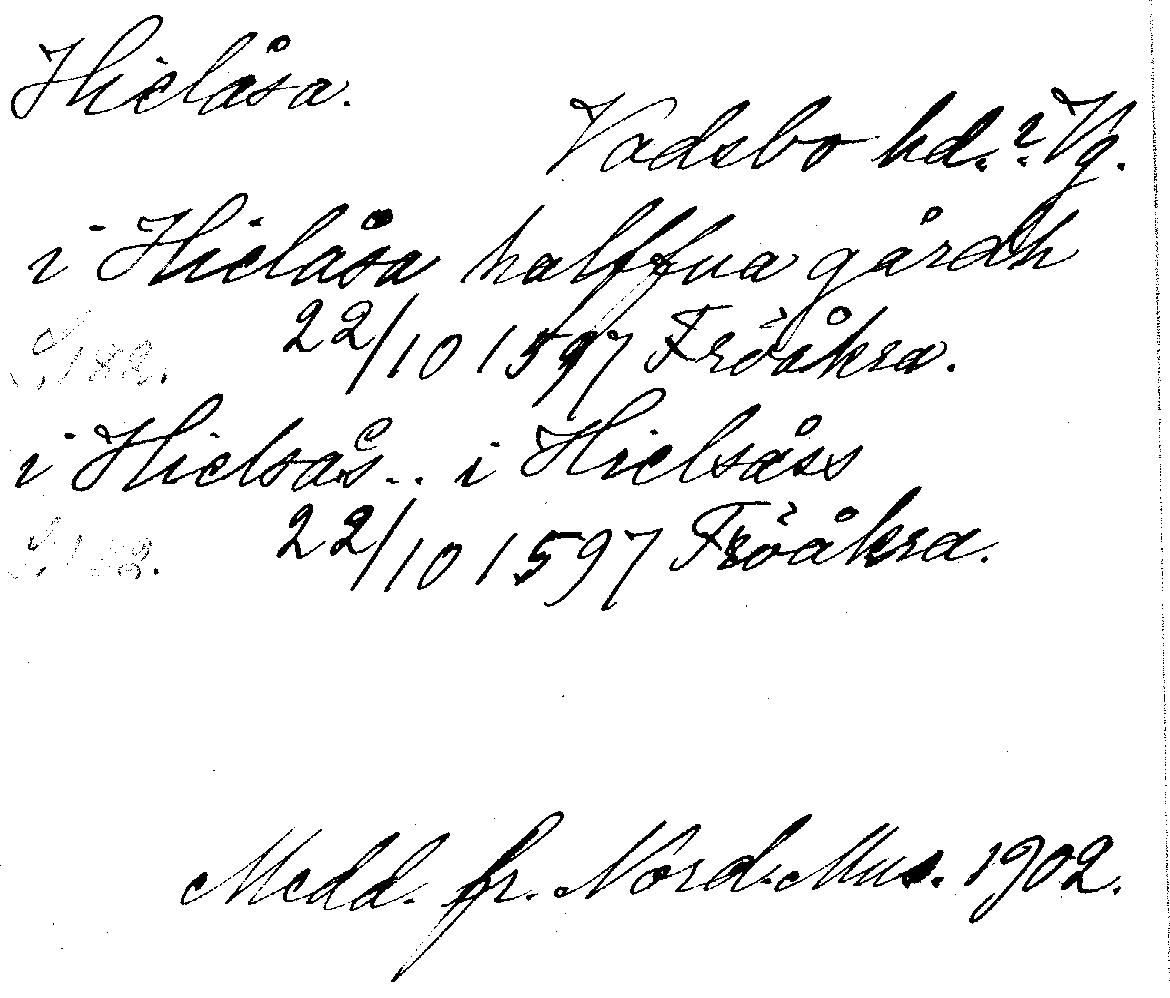 Hielåsa.
Vadsbo hd.? Vg.
i Hielåsa halffua gårdh
S. 182. 22/10 1597 Fröåkra.
i Hielsås.. i Hielsåss
S. 182. 22/10 1597 Fröåkra.
Medd. fr. Nord. Mus. 1902.